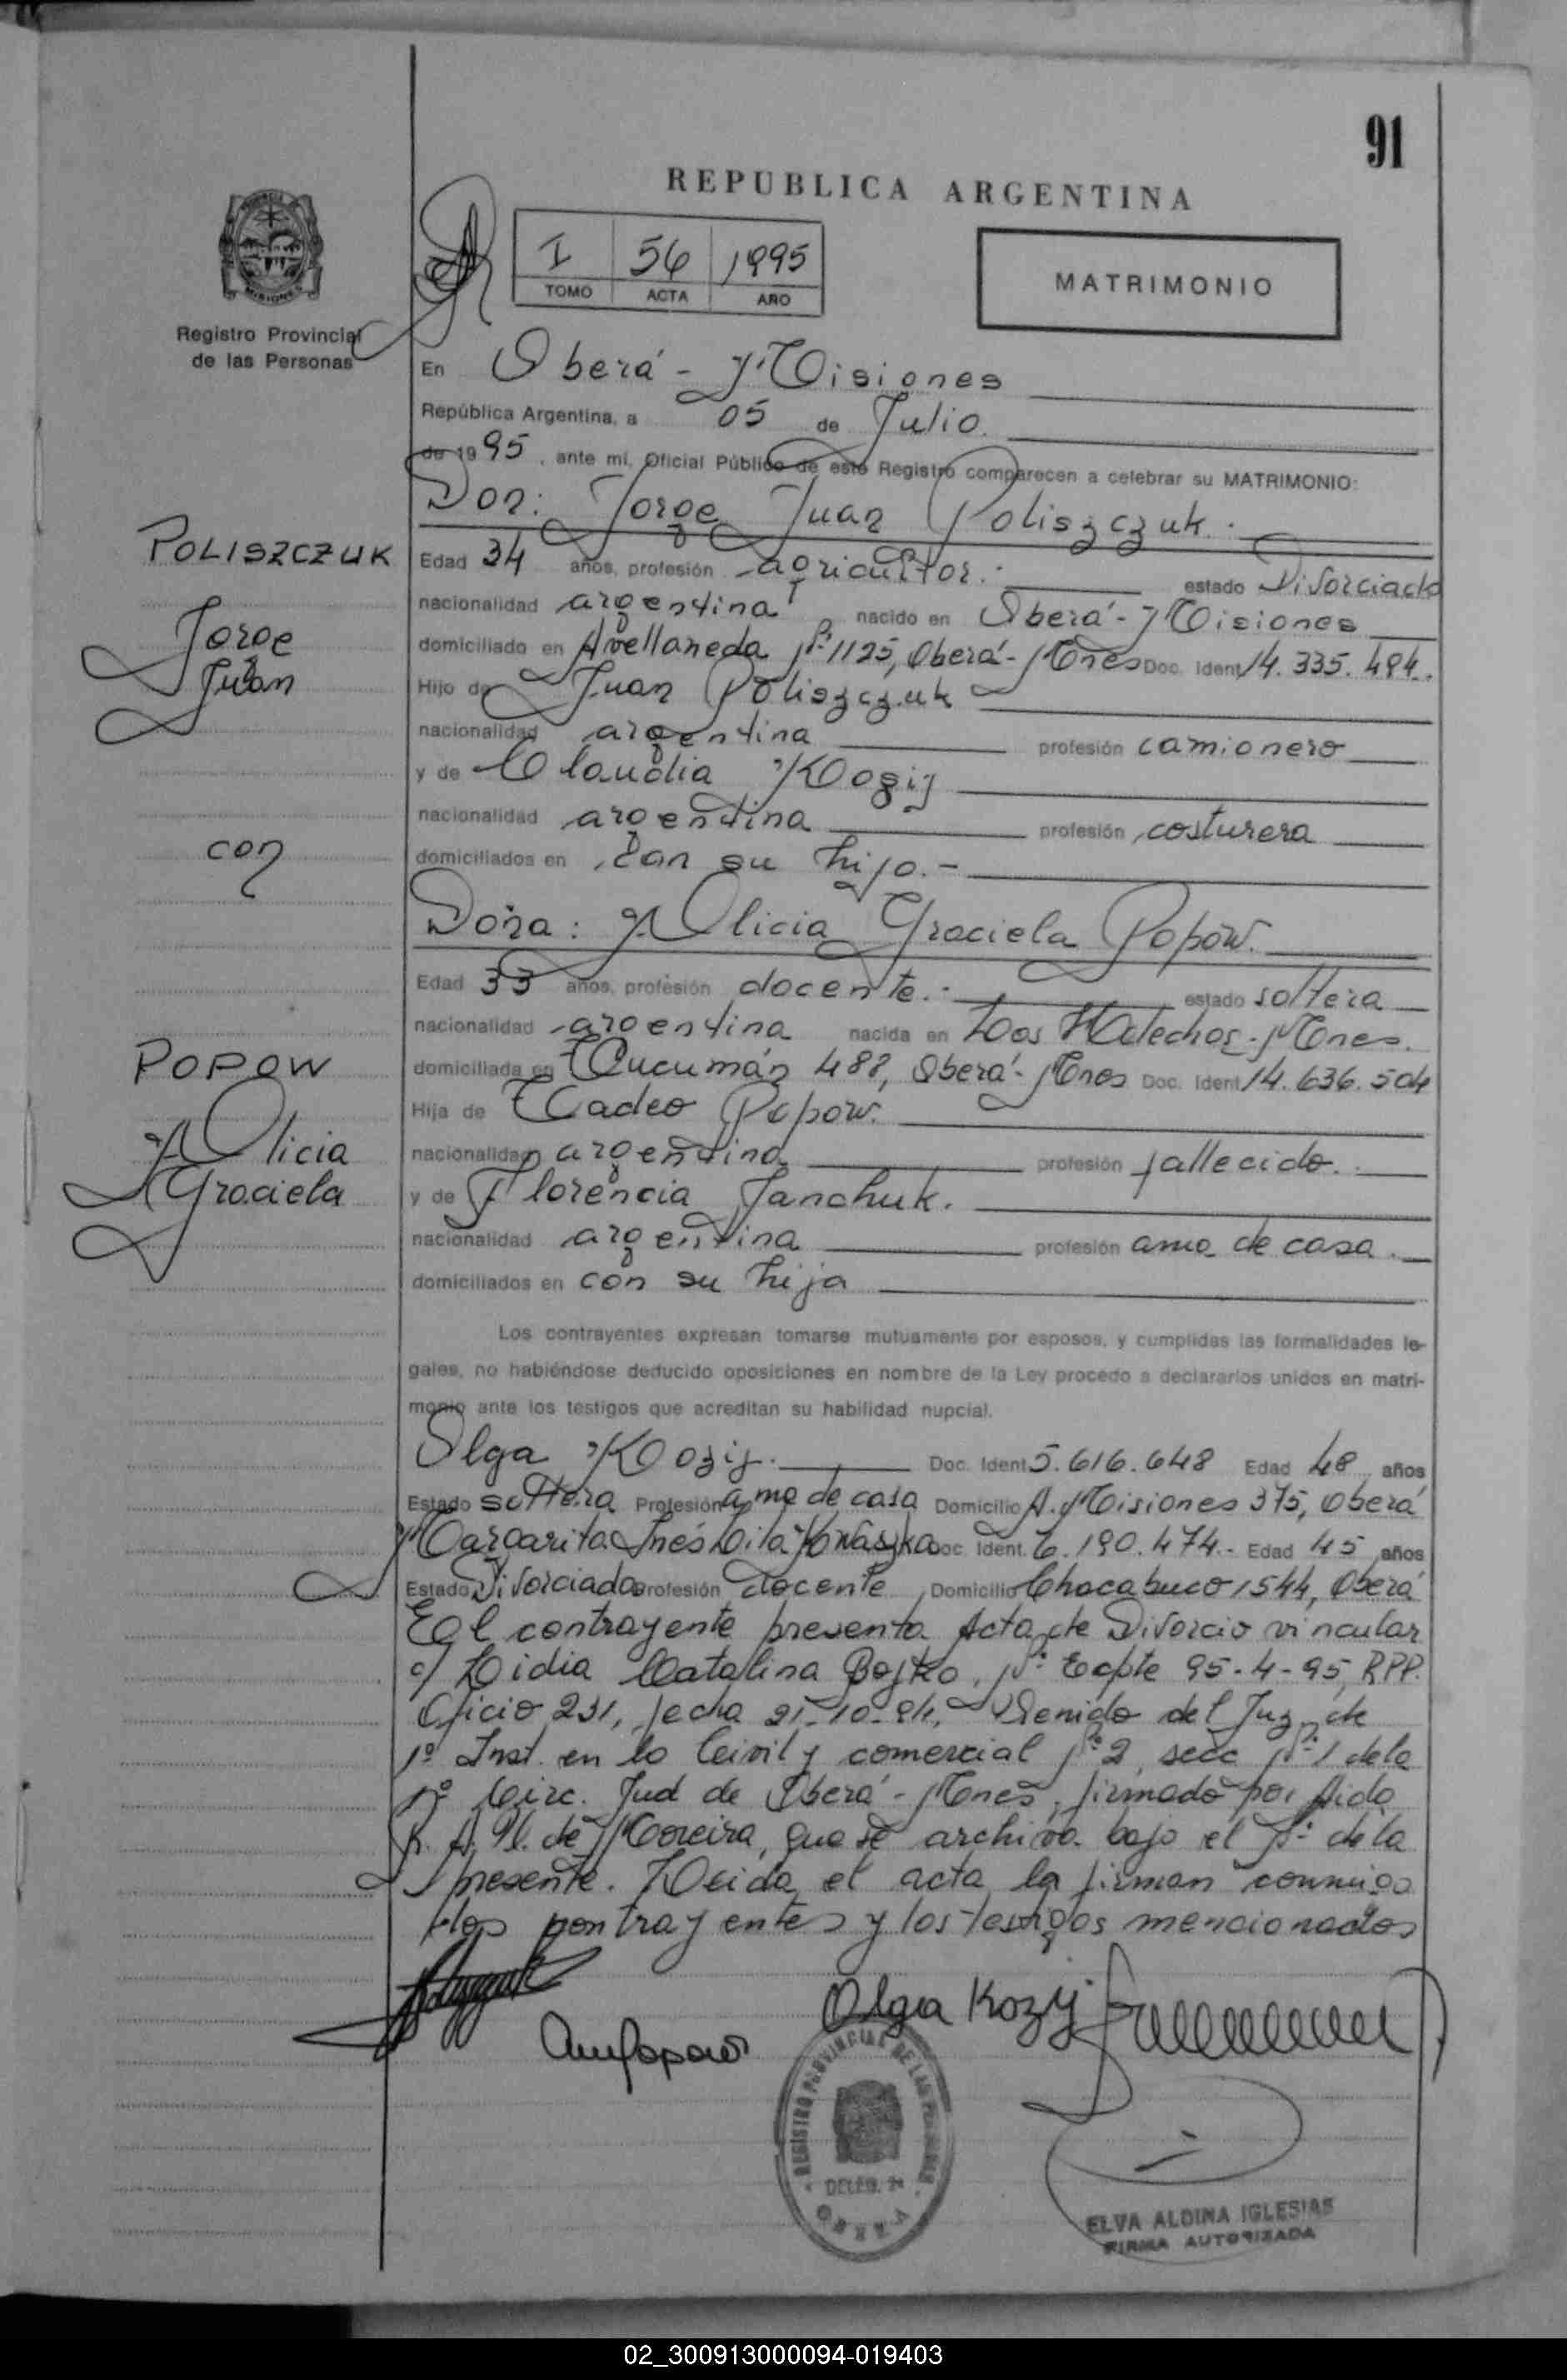 91
REPUBLICA ARGENTINA
I 56 1995
TOMO ACTA AÑO
MATRIMONIO
MISIONES
Registro Provincial
de las Personas
En Oberá - Misiones
República Argentina, a 05 de Julio.
de 1995, ante mi, Oficial Público de este Registro comparecen a celebrar su MATRIMONIO:
Don: Jorge Juan Poliszczuk.
POLISZCZUK
Jorge
Juan
Edad 34 años, profesión agricultor.- estado Divorciado
nacionalidad argentina nacido en Oberá - Misiones
domiciliado en Avellaneda Nº 1125, Oberá - Mnes Doc. Ident. 14.335.494.
Hijo de Juan Poliszczuk
nacionalidad argentina profesión camionero
y de Claudia Kozij
nacionalidad argentina profesión costurera
domiciliados en Con su hijo.-
con
Doña: Alicia Graciela Popow.
Edad 33 años, profesión docente.- estado soltera
nacionalidad argentina nacida en Los Helechos - Mnes.
POPOW
Alicia
Graciela
domiciliada en Tucumán 488, Oberá - Mnes Doc. Ident. 14.636.504
Hija de Tadeo Popow.
nacionalidad argentina profesión fallecido.
y de Florencia Janchuk.
nacionalidad argentina profesión ama de casa.
domiciliados en con su hija
Los contrayentes expresan tomarse mutuamente por esposos, y cumplidas las formalidades le-
gales, no habiéndose deducido oposiciones en nombre de la Ley procedo a declararlos unidos en matri-
monio ante los testigos que acreditan su habilidad nupcial.
Olga Kozij. Doc. Ident. 5.616.648 Edad 48 años
Estado soltera Profesión ama de casa Domicilio A. Misiones 375, Oberá
Margarita Inés Doc. Ident. 6.190.474.- Edad 45 años
Estado Divorciada Profesión docente Domicilio Chacabuco 1544, Oberá
El contrayente presenta Acta de Divorcio vincular
c/ Lidia Catalina Bojko, Nº Expte 95-4-95, RPP.
Oficio 231, fecha 21-10-94, Venido del Juz. de
1º Inst. en lo Civil y comercial Nº 2, secc Nº 1 de la
Circ. Jud de Oberá - Mnes, firmado por Aida
de Moreira, que se archiva bajo el Nº de la
presente. Leida el acta la firman conmigo
los contrayentes y los testigos mencionados
Olga Kozij
REGISTRO PROVINCIAL DE LAS PERSONAS
DELEG.
OBERA
ELVA ALDINA IGLESIAS
FIRMA AUTORIZADA
02_300913000094-019403